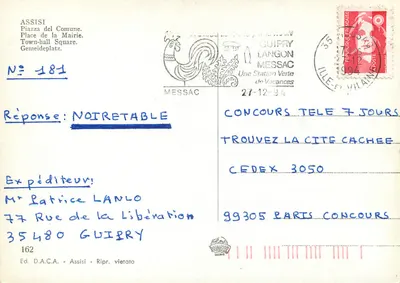 ASSISI
Piazza del Comune.
Place de la Mairie.
Town-hall Square.
Gemeindeplatz.
N° 181
Réponse: NOIRETABLE
Expéditeur:
Mr Patrice LANLO
77 Rue de la Libération
35480 GUIPRY
162
Ed. D.A.C.A. - Assisi - Ripr. vietata
GUIPRY
LANGON
MESSAC
Une Station Verte
de Vacances
MESSAC
27-12-94
35
1994
ILLE-ET-VILAINE
CONCOURS TELE 7 JOURS
TROUVEZ LA CITE CACHEE
CEDEX 3050
99305 PARIS CONCOURS